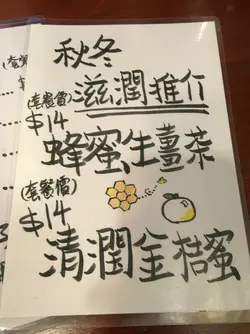 秋冬
(套餐價) 滋潤推介
$14 蜂蜜生薑茶
(套餐價)
$14 清潤金桔蜜